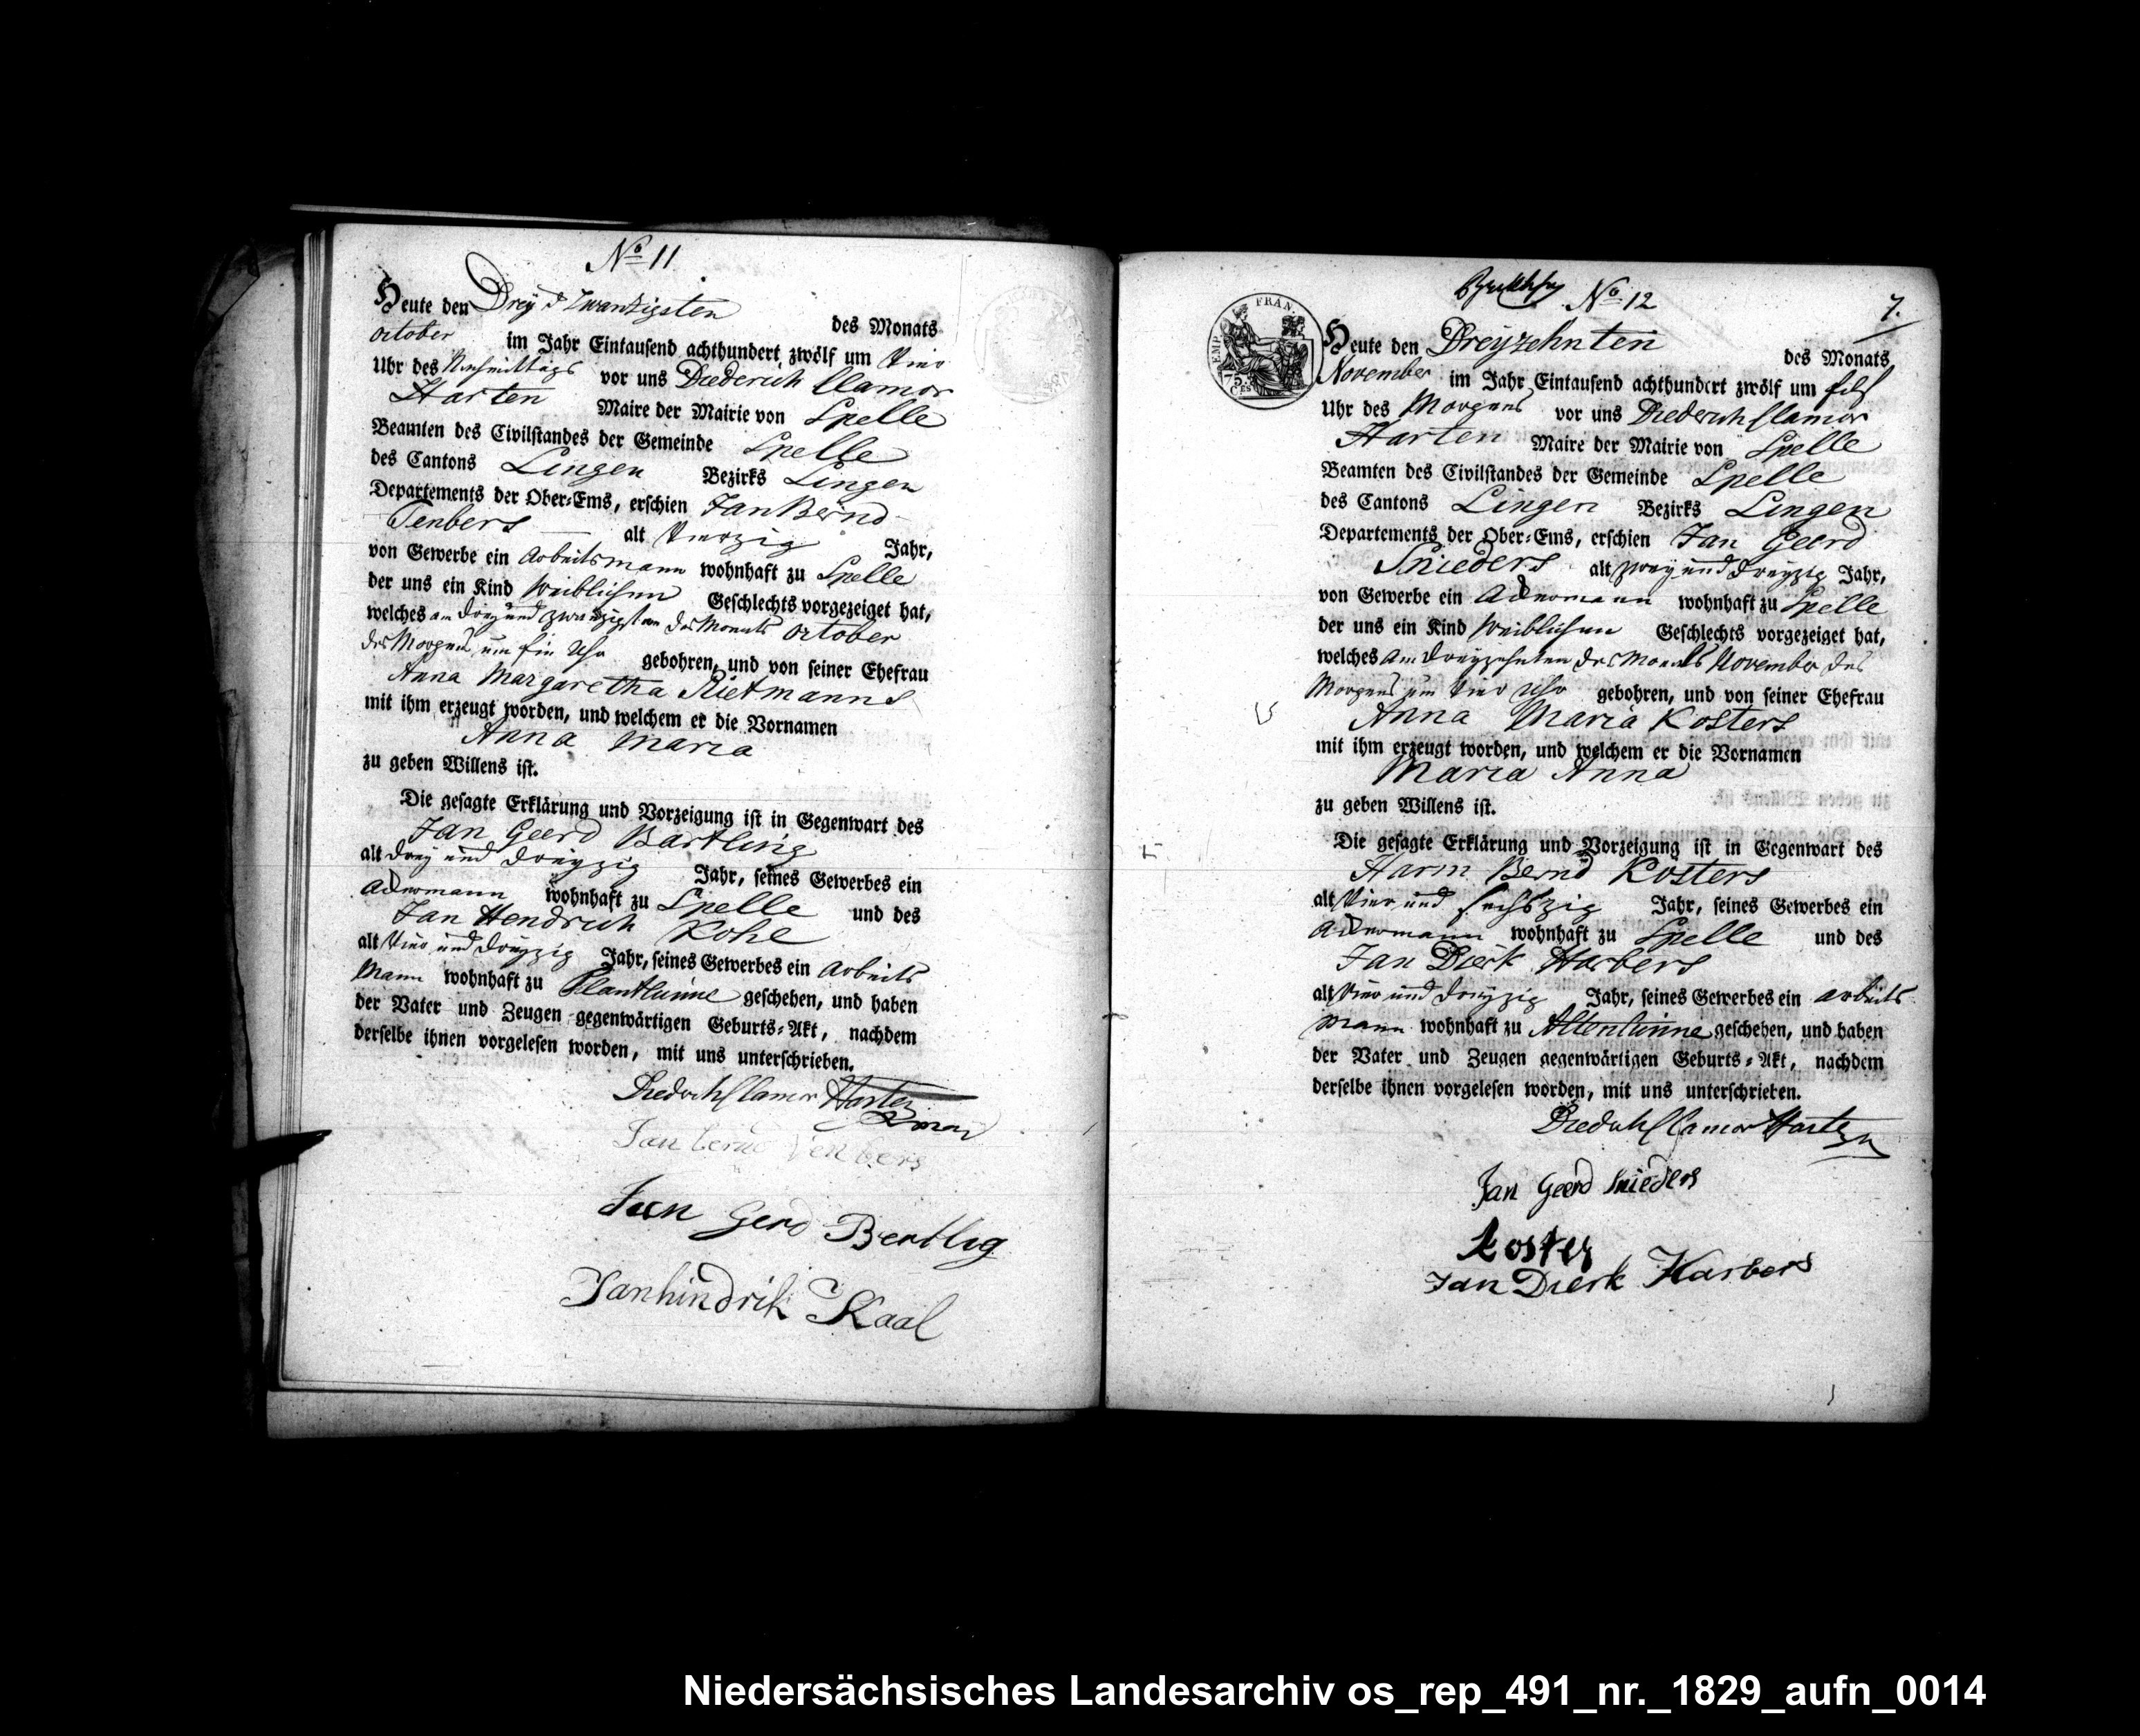 No 11
Heute den Drey & Zwantzigsten des Monats
october im Jahr Eintausend achthundert zwölf um Vier
Uhr des Nachmittags vor uns Diederich Clamor
Harten Maire der Mairie von Spelle
Beamten des Civilstandes der Gemeinde Spelle
des Cantons Lingen Bezirks Lingen
Departements der Ober-Ems, erschien Jan Bernd
Tenbers alt Vierzig Jahr,
von Gewerbe ein Arbeitsmann wohnhaft zu Spelle
der uns ein Kind Weiblichen Geschlechts vorgezeiget hat,
welches am drey und zwanzigsten des Monats October
des Morgens um Ein Uhr gebohren, und von seiner Ehefrau
Anna Margaretha Rietmanns
mit ihm erzeugt worden, und welchem er die Vornamen
Anna Maria
zu geben Willens ist.
Die gesagte Erklärung und Vorzeigung ist in Gegenwart des
Jan Geerd Bartling
alt drey und dreyzig Jahr, seines Gewerbes ein
Ackermann wohnhaft zu Spelle und des
Jan Hendrich Kohl
alt Vier und dreyzig Jahr, seines Gewerbes ein Arbeits
Mann wohnhaft zu Plantlünne geschehen, und haben
der Vater und Zeugen gegenwärtigen Geburts-Akt, nachdem
derselbe ihnen vorgelesen worden, mit uns unterschrieben.
Diederich Clamor Harten
Jan bernd Tenbers
Jan Gerd Bertlig
Janhindrik Kaal
No 12
7.
EMP. FRAN.
75 CES
Heute den Dreyzehnten des Monats
November im Jahr Eintausend achthundert zwölf um Elf
Uhr des Morgens vor uns Diederich Clamor
Harten Maire der Mairie von Spelle
Beamten des Civilstandes der Gemeinde Spelle
des Cantons Lingen Bezirks Lingen
Departements der Ober-Ems, erschien Jan Geerd
Snieders alt zwey und dreyzig Jahr,
von Gewerbe ein Ackermann wohnhaft zu Spelle
der uns ein Kind Weiblichen Geschlechts vorgezeiget hat,
welches am dreyzehnten des Monats November des
Morgens um Vier Uhr gebohren, und von seiner Ehefrau
Anna Maria Kosters
mit ihm erzeugt worden, und welchem er die Vornamen
Maria Anna
zu geben Willens ist.
Die gesagte Erklärung und Vorzeigung ist in Gegenwart des
Harm Bernd Kosters
alt Vier und sechszig Jahr, seines Gewerbes ein
Ackermann wohnhaft zu Spelle und des
Jan Dierk Harbers
alt Vier und dreyzig Jahr, seines Gewerbes ein Arbeits
mann wohnhaft zu Altenlünne geschehen, und haben
der Vater und Zeugen gegenwärtigen Geburts-Akt, nachdem
derselbe ihnen vorgelesen worden, mit uns unterschrieben.
Diederich Clamor Harten
Jan Geerd Snieders
Koster
Jan Dierk Harbers
Niedersächsisches Landesarchiv os_rep_491_nr._1829_aufn_0014